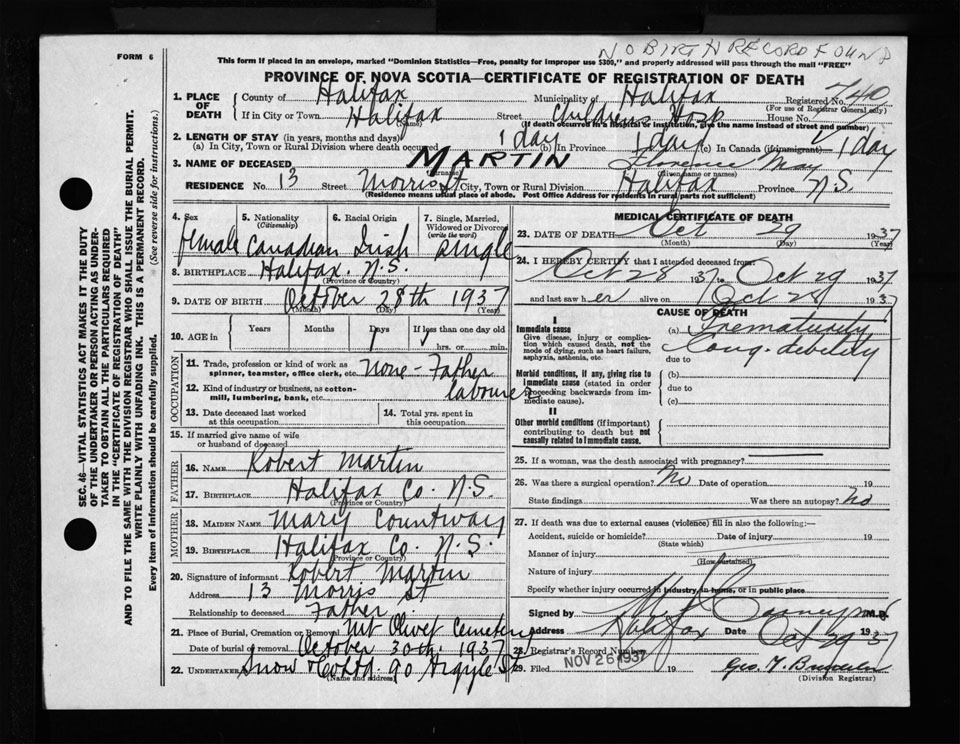 NO BIRTH RECORD FOUND
FORM 6
This form if placed in an envelope, marked "Dominion Statistics—Free, penalty for improper use $300," and properly addressed will pass through the mail "FREE"
PROVINCE OF NOVA SCOTIA—CERTIFICATE OF REGISTRATION OF DEATH
SEC. 46—VITAL STATISTICS ACT MAKES IT THE DUTY
OF THE UNDERTAKER OR PERSON ACTING AS UNDER-
TAKER TO OBTAIN ALL THE PARTICULARS REQUIRED
IN THE "CERTIFICATE OF REGISTRATION OF DEATH"
AND TO FILE THE SAME WITH THE DIVISION REGISTRAR WHO SHALL ISSUE THE BURIAL PERMIT.
WRITE PLAINLY WITH UNFADING INK. THIS IS A PERMANENT RECORD.
Every item of information should be carefully supplied. (See reverse side for instructions.)
1. PLACE OF DEATH County of Halifax Municipality of Halifax Registered No. 740
(For use of Registrar General only)
If in City or Town Halifax Street Childrens Hosp House No.
(Name) (If death occurred in a hospital or institution, give the name instead of street and number)
2. LENGTH OF STAY (in years, months and days)
(a) In City, Town or Rural Division where death occurred 1 day (b) In Province 1 day (c) In Canada (if immigrant) 1 day
3. NAME OF DECEASED MARTIN Florence May
(Surname) (Given name or names)
RESIDENCE No. 13 Street Morris St City, Town or Rural Division Halifax Province N.S.
(Residence means usual place of abode. Post Office Address for residents in rural parts not sufficient)
4. Sex female
5. Nationality (Citizenship) Canadian
6. Racial Origin Irish
7. Single, Married, Widowed or Divorced (write the word) single
8. BIRTHPLACE Halifax. N.S.
(Province or Country)
9. DATE OF BIRTH October 28th 1937
(Month) (Day) (Year)
10. AGE in Years Months Days 1 If less than one day old hrs. or min.
OCCUPATION
11. Trade, profession or kind of work as spinner, teamster, office clerk, etc. None - Father
12. Kind of industry or business, as cotton-mill, lumbering, bank, etc. labourer
13. Date deceased last worked at this occupation
14. Total yrs. spent in this occupation
15. If married give name of wife or husband of deceased
FATHER
16. NAME Robert Martin
17. BIRTHPLACE Halifax Co. N.S.
(Province or Country)
MOTHER
18. MAIDEN NAME Mary Countway
19. BIRTHPLACE Halifax Co. N.S.
(Province or Country)
20. Signature of informant Robert Martin
Address 13 Morris St
Relationship to deceased Father
21. Place of Burial, Cremation or Removal Mt Olivet Cemetery
Date of burial or removal October 30th. 1937
22. UNDERTAKER Snow & Co Ltd. 90 Argyle St
(Name and address)
MEDICAL CERTIFICATE OF DEATH
23. DATE OF DEATH Oct 29 1937
(Month) (Day) (Year)
24. I HEREBY CERTIFY that I attended deceased from:
Oct 28 1937 to Oct 29 1937
and last saw her alive on Oct 1937
CAUSE OF DEATH
I
Immediate cause
Give disease, injury or complication which caused death, not the mode of dying, such as heart failure, asphyxia, asthenia, etc.
(a) Prematurity
Cong. debility
due to
Morbid conditions, if any, giving rise to immediate cause (stated in order proceeding backwards from immediate cause).
(b)
due to
(c)
II
Other morbid conditions (if important) contributing to death but not causally related to immediate cause.
25. If a woman, was the death associated with pregnancy?
26. Was there a surgical operation? No Date of operation 19
State findings Was there an autopsy? No
27. If death was due to external causes (violence) fill in also the following:—
Accident, suicide or homicide? Date of injury 19
(State which)
Manner of injury
(How sustained)
Nature of injury
Specify whether injury occurred in industry, in home, or in public place
Signed by M.D.
Address Halifax Date Oct 29 1937
28. Registrar's Record Number
29. Filed NOV 26 1937 19
(Division Registrar)